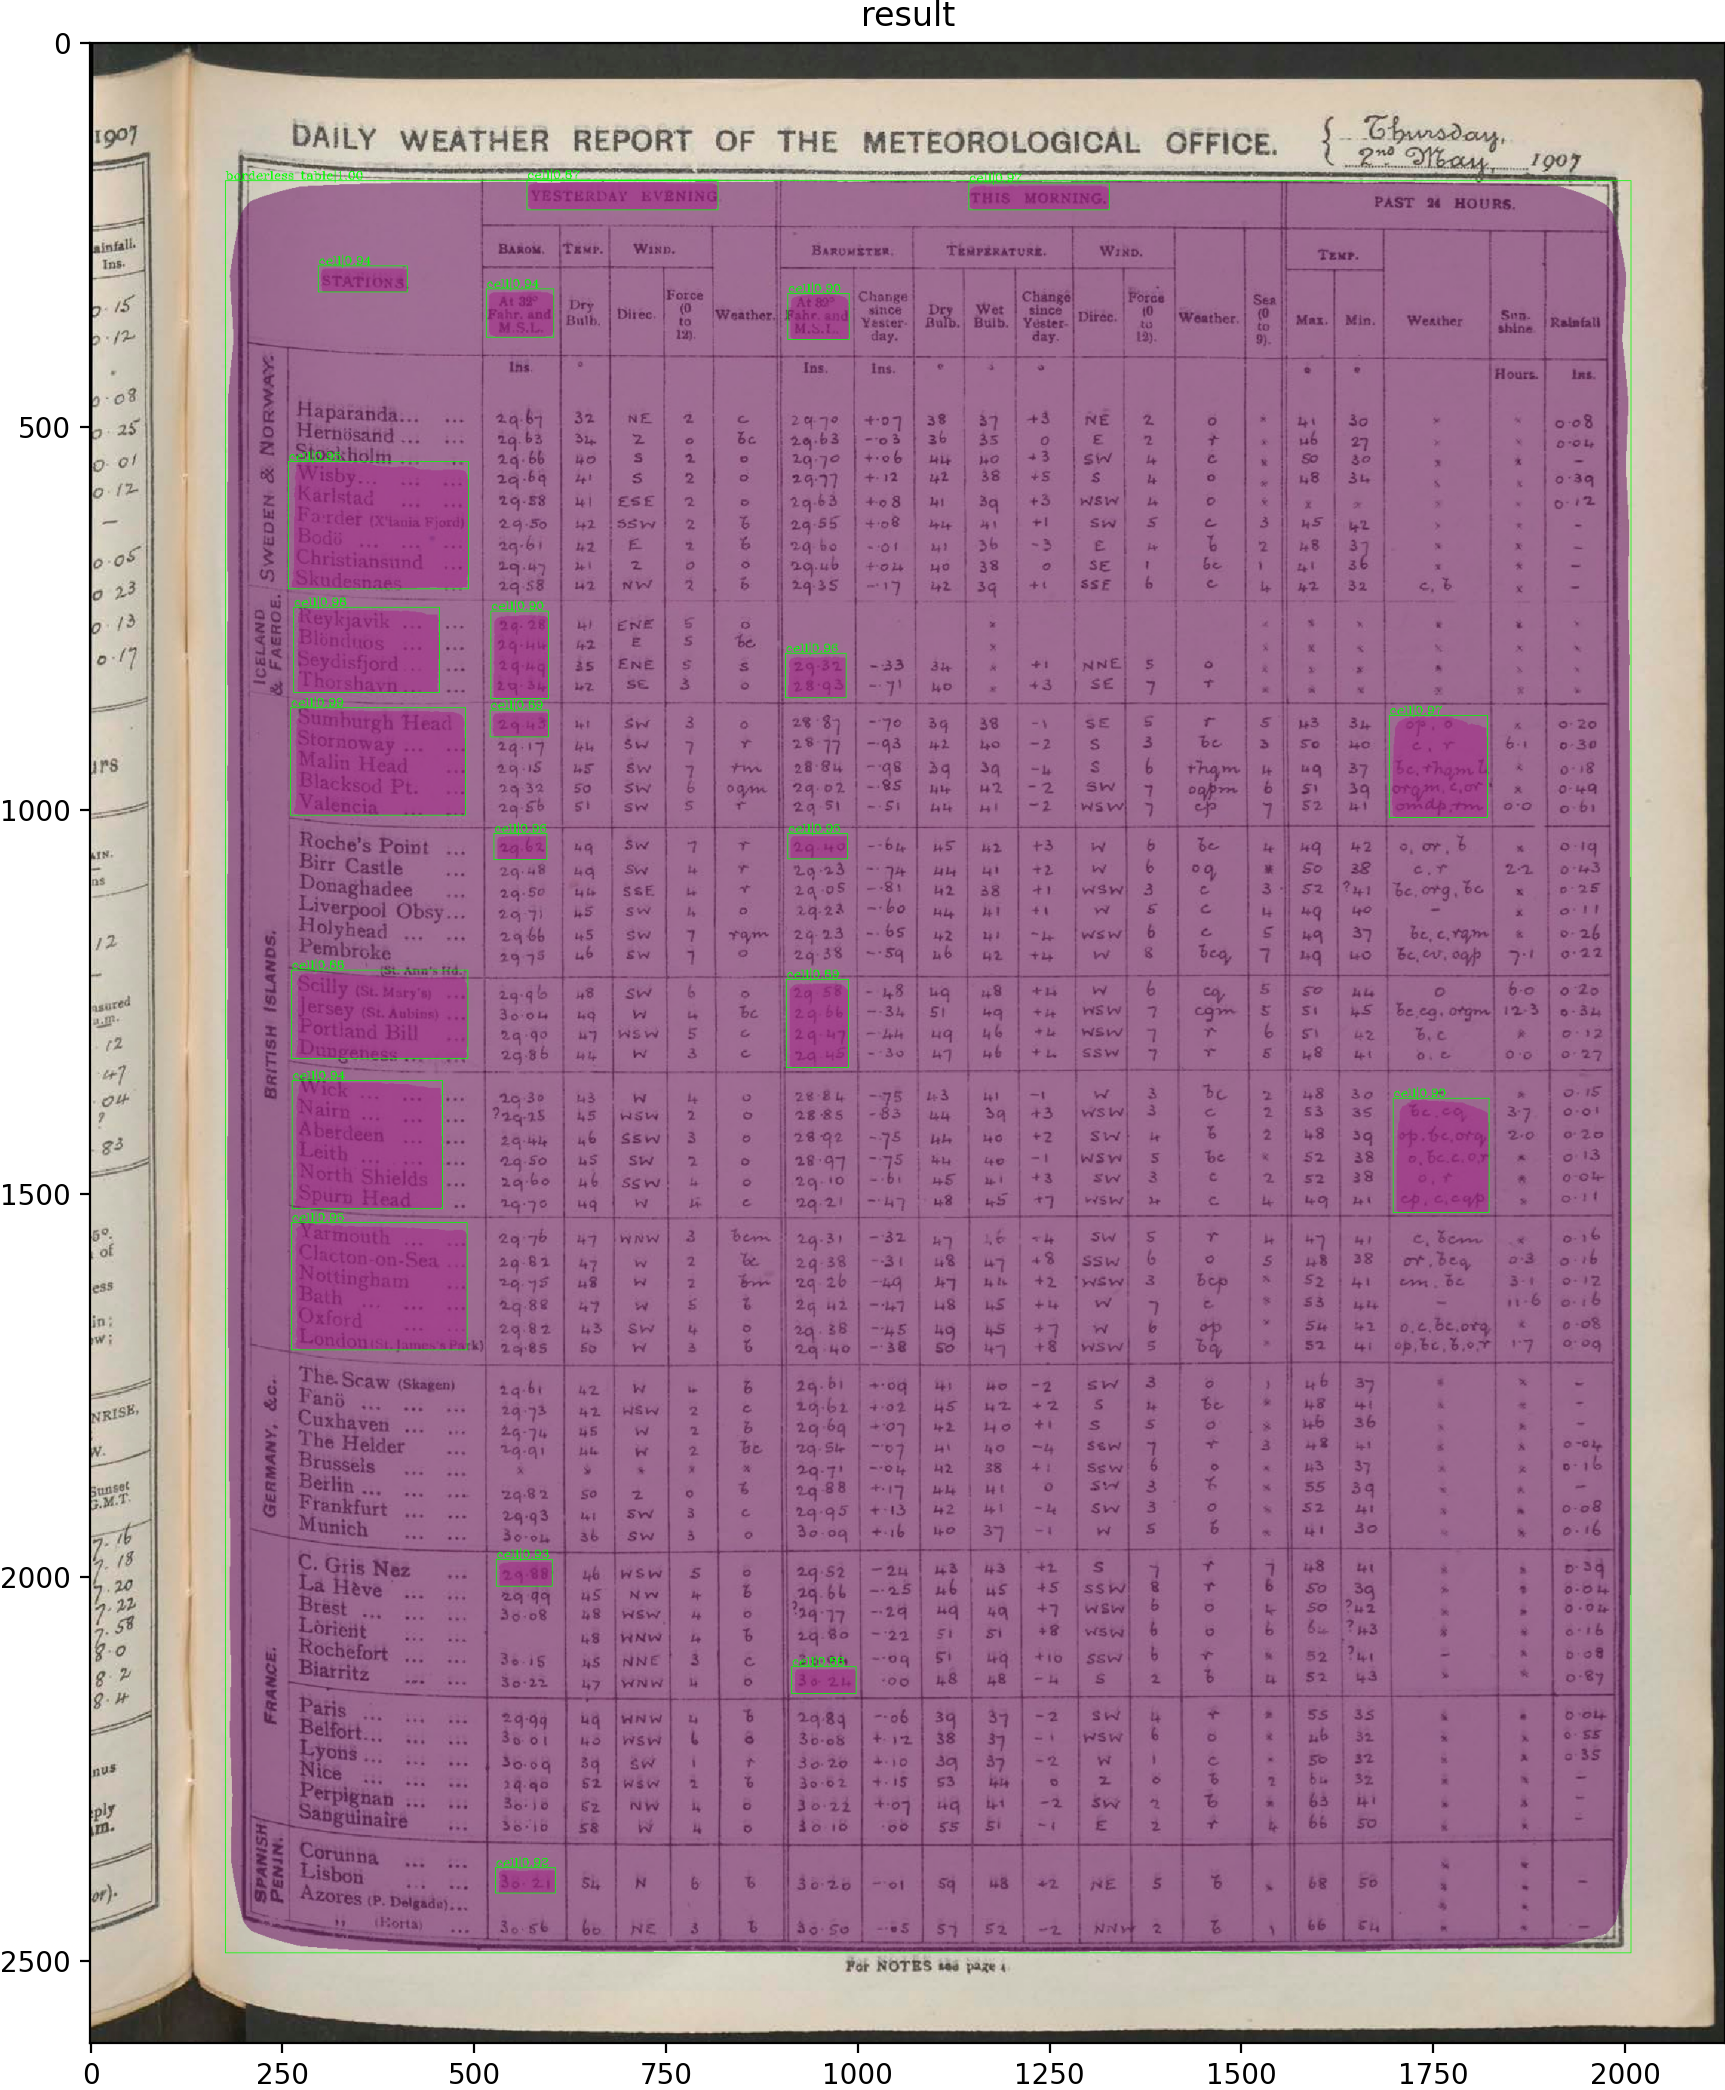 result
DAILY WEATHER REPORT OF THE METEOROLOGICAL OFFICE. { Thursday, 2nd May, 1907
YESTERDAY EVENING. THIS MORNING. PAST 24 HOURS.
BAROM. TEMP. WIND. BAROMETER. TEMPERATURE. WIND. TEMP.
STATIONS. At 32° Fahr. and M.S.L. Dry Bulb. Direc. Force (0 to 12). Weather. At 32° Fahr. and M.S.L. Change since Yesterday. Dry Bulb. Wet Bulb. Change since Yesterday. Direc. Force (0 to 12). Weather. Sea (0 to 9). Max. Min. Weather Sunshine. Rainfall
Ins. Ins. Ins. Hours. Ins.
SWEDEN & NORWAY.
Haparanda... ... 29.67 32 NE 2 c 29.70 +.07 38 37 +3 NE 2 o × 41 30 × × 0.08
Hernösand ... ... 29.63 34 Z 0 bc 29.63 -.03 36 35 0 E 2 r × 46 27 × × 0.04
Stockholm ... ... 29.66 40 S 2 o 29.70 +.06 44 40 +3 SW 4 c × 50 30 × × –
Wisby... ... ... 29.69 41 S 2 o 29.77 +.12 42 38 +5 S 4 o × 48 34 × × 0.39
Karlstad ... ... 29.58 41 ESE 2 o 29.63 +.08 41 39 +3 WSW 4 o × × × × × 0.12
Færder (X'iania Fjord) 29.50 42 SSW 2 b 29.55 +.08 44 41 +1 SW 5 c 3 45 42 × × –
Bodö ... ... ... 29.61 42 E 2 b 29.60 -.01 41 36 -3 E 4 b 2 48 37 × × –
Christiansund ... 29.47 41 Z 0 o 29.46 +.04 40 38 0 SE 1 bc 1 41 36 × × –
Skudesnaes ... 29.58 42 NW 2 b 29.35 -.17 42 39 +1 SSE 6 c 4 42 32 c, b × –
ICELAND & FAEROE.
Reykjavik ... ... 29.28 41 ENE 5 o × × × × × × ×
Blönduos ... ... 29.44 42 E 5 bc × × × × × × ×
Seydisfjord ... 29.49 35 ENE 5 s 29.32 -.33 34 × +1 NNE 5 o × × × × × ×
Thorshavn ... ... 29.34 42 SE 3 o 28.93 -.71 40 × +3 SE 7 r × × × × × ×
BRITISH ISLANDS.
Sumburgh Head 29.43 41 SW 3 o 28.87 -.70 39 38 -1 SE 5 r 5 43 34 op, o × 0.20
Stornoway ... ... 29.17 44 SW 7 r 28.77 -.93 42 40 -2 S 3 bc 3 50 40 c, r 6.1 0.30
Malin Head ... 29.15 45 SW 7 rm 28.84 -.98 39 39 -4 S 6 rhqm 4 49 37 bc, rhqm × 0.18
Blacksod Pt. ... 29.32 50 SW 6 oqm 29.02 -.85 44 42 -2 SW 7 oqpm 6 51 39 orqm, c, or × 0.49
Valencia ... ... 29.56 51 SW 5 r 29.51 -.51 44 41 -2 WSW 7 cp 7 52 41 omdp, rm 0.0 0.61
Roche's Point ... 29.62 49 SW 7 r 29.40 -.64 45 42 +3 W 6 bc 4 49 42 o, or, b × 0.19
Birr Castle ... 29.48 49 SW 4 r 29.23 -.74 44 41 +2 W 6 oq × 50 38 c, r 2.2 0.43
Donaghadee ... 29.50 44 SSE 4 r 29.05 -.81 42 38 +1 WSW 3 c 3 52 ?41 bc, orq, bc × 0.25
Liverpool Obsy... 29.71 45 SW 4 o 29.23 -.60 44 41 +1 W 5 c 4 49 40 – × 0.11
Holyhead ... ... 29.66 45 SW 7 rqm 29.23 -.65 42 41 -4 WSW 6 c 5 49 37 bc, c, rqm × 0.26
Pembroke (St. Ann's Hd.) 29.75 46 SW 7 o 29.38 -.59 46 42 +4 W 8 bcq 7 49 40 bc, cv, oqp 7.1 0.22
Scilly (St. Mary's) ... 29.96 48 SW 6 o 29.58 -.48 49 48 +4 W 6 cq 5 50 44 o 6.0 0.20
Jersey (St. Aubins) ... 30.04 49 W 4 bc 29.66 -.34 51 49 +4 WSW 7 cqm 5 51 45 bc, cq, orqm 12.3 0.34
Portland Bill ... 29.90 47 WSW 5 c 29.47 -.44 49 46 +4 WSW 7 r 6 51 42 b, c × 0.12
Dungeness ... ... 29.86 44 W 3 c 29.45 -.30 47 46 +4 SSW 7 r 5 48 41 o, c 0.0 0.27
Wick ... ... ... 29.30 43 W 4 o 28.84 -.75 43 41 -1 W 3 bc 2 48 30 × 0.15
Nairn ... ... ... ?29.25 45 WSW 2 o 28.85 -.83 44 39 +3 WSW 3 c 2 53 35 bc, cq 3.7 0.01
Aberdeen ... ... 29.44 46 SSW 3 o 28.92 -.75 44 40 +2 SW 4 b 2 48 39 op, bc, orq 2.0 0.20
Leith ... ... ... 29.50 45 SW 2 o 28.97 -.75 44 40 -1 WSW 5 bc × 52 38 o, bc, c, or × 0.13
North Shields ... 29.60 46 SSW 4 o 29.10 -.61 45 41 +3 SW 3 c 2 52 38 o, r × 0.04
Spurn Head ... 29.70 49 W 4 c 29.21 -.47 48 45 +7 WSW 4 c 4 49 41 cp, c, cqp × 0.11
Yarmouth ... ... 29.76 47 WNW 3 bcm 29.31 -.32 47 46 -4 SW 5 r 4 47 41 c, bcm × 0.16
Clacton-on-Sea ... 29.82 47 W 2 bc 29.38 -.31 48 47 +8 SSW 6 o 5 48 38 or, bcq 0.3 0.16
Nottingham ... 29.75 48 W 2 bm 29.26 -.49 47 44 +2 WSW 3 bcp × 52 41 cm, bc 3.1 0.12
Bath ... ... ... 29.88 47 W 5 b 29.42 -.47 48 45 +4 W 7 c × 53 44 – 11.6 0.16
Oxford ... ... 29.82 43 SW 4 o 29.38 -.45 49 45 +7 W 6 op × 54 42 o, c, bc, orq × 0.08
London (St. James's Park) 29.85 50 W 3 b 29.40 -.38 50 47 +8 WSW 5 bq × 52 41 op, bc, b, o, r 1.7 0.09
GERMANY, &c.
The Scaw (Skagen) 29.61 42 W 4 b 29.61 +.09 41 40 -2 SW 3 o 1 46 37 × × –
Fanö ... ... ... 29.73 42 WSW 2 c 29.62 +.02 45 42 +2 S 4 bc × 48 41 × × –
Cuxhaven ... ... 29.74 45 W 2 b 29.69 +.07 42 40 +1 S 5 o × 46 36 × × –
The Helder ... 29.91 44 W 2 bc 29.54 -.07 41 40 -4 SSW 7 r 3 48 41 × × 0.04
Brussels ... ... × × × × × 29.71 -.04 42 38 +1 SSW 6 o × 43 37 × × 0.16
Berlin ... ... ... 29.82 50 Z 0 b 29.88 +.17 44 41 0 SW 3 b × 55 39 × × –
Frankfurt ... ... 29.93 41 SW 3 c 29.95 +.13 42 41 -4 SW 3 o × 52 41 × × 0.08
Munich ... ... 30.04 36 SW 3 o 30.09 +.16 40 37 -1 W 5 b × 41 30 × × 0.16
FRANCE.
C. Gris Nez ... 29.88 46 WSW 5 o 29.52 -.24 43 43 +2 S 7 r 7 48 41 × × 0.39
La Hève ... ... 29.99 45 NW 4 b 29.66 -.25 46 45 +5 SSW 8 r 6 50 39 × × 0.04
Brest ... ... ... 30.08 48 WSW 4 o ?29.77 -.29 49 49 +7 WSW 6 o 4 50 ?42 × × 0.04
Lorient ... ... 48 WNW 4 b 29.80 -.22 51 51 +8 WSW 6 o 6 64 ?43 × × 0.16
Rochefort ... ... 30.15 45 NNE 3 c -.09 51 49 +10 SSW 6 r × 52 ?41 – × 0.08
Biarritz ... ... 30.22 47 WNW 4 o 30.21 .00 48 48 -4 S 2 b 4 52 43 × × 0.87
Paris ... ... ... 29.99 49 WNW 4 b 29.89 -.06 39 37 -2 SW 4 r × 55 35 × × 0.04
Belfort... ... ... 30.01 40 WSW 6 o 30.08 +.12 38 37 -1 WSW 6 o × 46 32 × × 0.55
Lyons ... ... ... 30.09 39 SW 1 r 30.20 +.10 39 37 -2 W 1 c × 50 32 × × 0.35
Nice ... ... ... 29.90 52 WSW 2 b 30.02 +.15 53 44 0 Z 0 b 2 64 32 × × –
Perpignan ... ... 30.10 52 NW 4 o 30.22 +.07 49 41 -2 SW 2 b × 63 41 × × –
Sanguinaire ... 30.10 58 W 4 o 30.10 .00 55 51 -1 E 2 r 4 66 50 × × –
SPANISH PENIN.
Corunna ... ... × ×
Lisbon ... ... 30.21 54 N 6 b 30.20 -.01 59 48 +2 NE 5 b × 68 50 × × –
Azores (P. Delgada)... × ×
„ (Horta) ... 30.56 60 NE 3 b 30.50 -.05 57 52 -2 NNW 2 b 1 66 54 × × –
For NOTES see page 4.
1907
Rainfall. Ins.
0.15
0.12
0.08
0.25
0.01
0.12
–
0.05
0.23
0.13
0.17
12
12
47
04
?
83
SUNRISE,
Sunset G.M.T.
7.16
7.18
7.20
7.22
7.58
8.0
8.2
8.4
0
500
1000
1500
2000
2500
0 250 500 750 1000 1250 1500 1750 2000